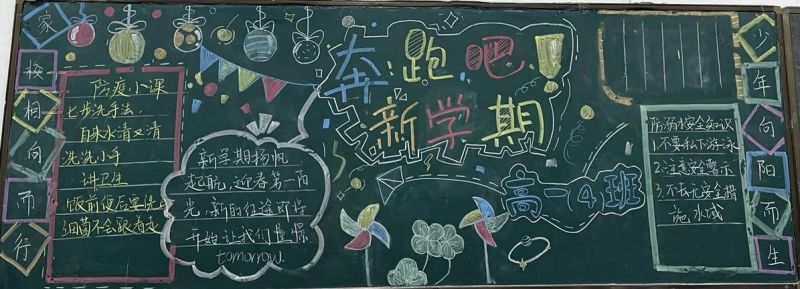 家校相向而行
防疫小课
七步洗手法，
自来水清又清
洗洗小手
讲卫生
饭前便后要洗手
细菌不会跟着走
新学期扬帆
起航，迎春第一阳
光，新的征途即学
开始让我们憧憬
tomorrow.
奔跑吧
新学期
高一（4）班
防溺水安全知识
1.不要私下游泳
2.注意安全警示
3.不去无安全措
施水域
少年向阳而生